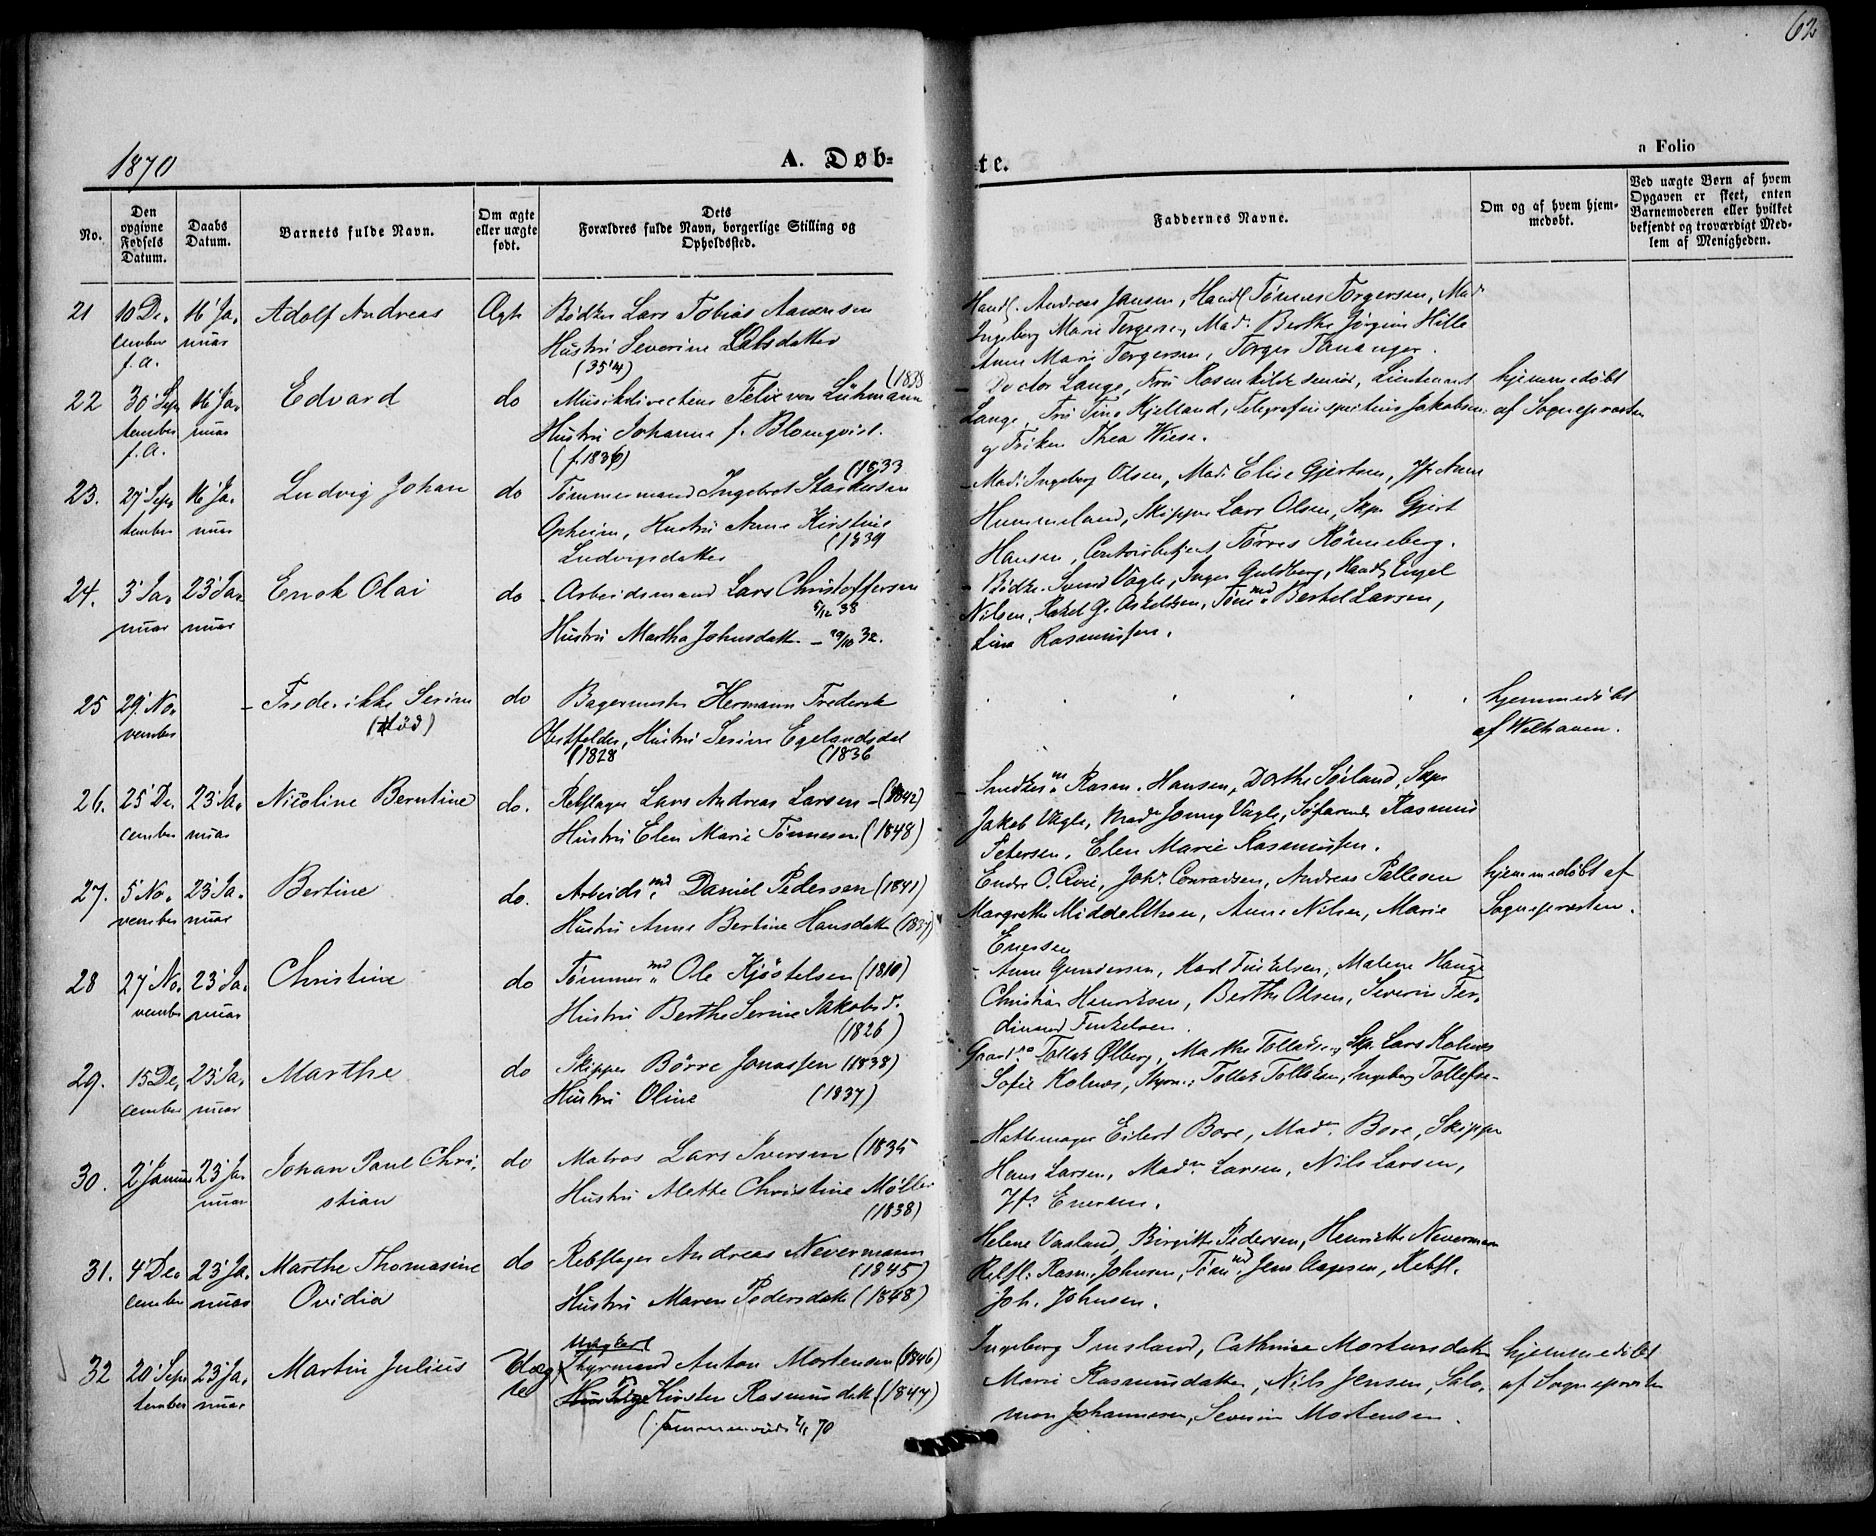 62
1870
A. Døb-
te.
a Folio
No.
Den
opgivne
Fødsels
Datum.
Daabs
Datum.
Barnets fulde Navn.
Om ægte
eller uægte
født.
Dets
Forældres fulde Navn, borgerlige Stilling og
Opholdssted.
Faddernes Navne.
Om og af hvem hjem-
medøbt.
Ved uægte Børn af hvem
Opgaven er skeet, enten
Barnemoderen eller hvilket
bekjendt og troværdigt Med-
lem af Menigheden.
21
10 De-
cember
f. a.
16' Ja-
nuar
Adolf Andreas
Ægte
Bødker Lars Tobias Aanensen
Hustru Severine Larsdatter
(35
Handl. Andreas Jansen, Handl Tønnes Torgersen, Mad
Ingeborg Marie Torgersen, Mad. Berthe Jørgine Hille
Anne Marie Torgersen, Torger Tananger.
22
30' Sep
tember
f. a.
16' Ja-
nuar
Edvard
do
(1838
Musikdirecteur Felix von Lühmann
Hustru Johanne f. Blomqvist.
(f. 1836)
Doctor Lange, Fru Rosenkilde senior, Lieutenant
Lange, Fru Tine Kjelland, Telegrafinspecteur Jakobsen
og Frøken Thea Wiese.
hjemmedøbt
af Sognepresten
23.
27' Sep
tember
16' Ja-
nuar
Ludvig Johan
do
(1833
Tømmermand Ingebret
Opheim, Hustru Anne Kirstine
(1839
Ludvigsdatter
Mad. Ingeborg Olsen, Mad. Elise Gjertsen, Jfr Anne
Hummeland, Skipper Lars Olsen, Skpr Gjert
Hansen, Torres Rønneberg.
24.
3' Ja-
nuar
23' Ja-
nuar
Enok Olai
do
Arbeidsmand Lars Christoffersen
5/12 38
Hustru Martha Johnsdatter – 29/10 32.
Bødker Svend Vagle, Inger Guldberg, Handl Engel
Nilsen, Rakel G. Askeldsen, Tømmd Bertel Larsen,
Lina Rasmussen.
25
29' No-
vember
Frederikke Serine
(død)
do
Bagermester Hermann Frederik
Obstfelder, Hustru Serine Egelandsdal
(1828
(1836
hjemmedøbt
af Welhaven.
26.
25' De-
cember
23' Ja-
nuar
Nicoline Berntine
do.
Rebslager Lars Andreas Larsen – (1842)
Hustru Elen Marie Tønnesen (1848)
Snedkerm. Rasm. Hansen, Dorthe Sørland, Skpr
Jakob Vagle, Mad. Jonny Vagle, Søfarende Rasmus
Petersen, Elen Marie Rasmussen.
27.
5' No-
vember
23' Ja-
nuar
Bertine
do.
Arbeidsmd. Daniel Pedersen (1841)
Hustru Anne Bertine Hansdatter (1837)
Endre O. Qvie, Johs. Conradsen, Andreas Pallesen
Margrethe Middelthon, Anne Nilsen, Marie
Enersen
hjemmedøbt af
Sognepresten.
28
27' No-
vember
23' Ja-
nuar
Christine
do
Tømmermd. Ole Kjøstelsen (1810)
Hustru Berthe Serine Jakobsd.
(1826)
Anne Gundersen, Karl Finkelsen, Malene Hauge
Christian Henriksen, Berthe Olsen, Severin Fer-
dinand Finkelsen.
29.
15 De-
cember
23' Ja-
nuar
Marthe
do
Skipper Børre Jonassen (1838)
Hustru Oline (1837)
Gaardm. Tollak Ølberg, Marthe Tollaksen, Skp. Lars Kolnes
Sofie Kolnes, Styrm. Tollak Tollaksen, Ingeborg Tollefse-
30.
2' Januar
23' Ja-
nuar
Johan Paul Chri-
stian
do
Matros Lars Iversen (1835
Hustru Alette Christine Møller
(1838)
Hattemager Eilert Bore, Madm Bore, Skipper
Hans Larsen, Madm Larsen, Nils Larsen,
Jfr. Enersen.
31.
4' De-
cember
23' Ja-
nuar
Marthe Thomasine
Ovidia
do
Rebslager Andreas Nevermann
(1845)
Hustru Maren Pedersdatter (1848)
Helene Vasland, Birgitte Pedersen, Henriette Neverman
Rebsl. Rasm. Johnsen, Tømmd. Jens Aagesen, Rebsl.
Joh. Johnsen.
32
20' Sep
tember
23' Ja-
nuar
Martin Julius
Uæg
te
Ungkarl
Styrmand Anton Mortensen (1846)
Hustru Pige Kirsten Rasmusdatt (1847)
Ingeborg Imsland, Cathrine Mortensdatter
Marie Rasmusdatter, Nils Jensen, Salo-
mon Johannesen, Severin Mortensen.
hjemmedøbt
af Sognepresten